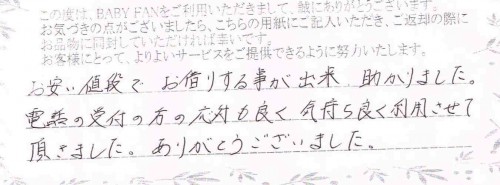 この度は、BABY FANをご利用いただきまして、誠にありがとうございます。
お気づきの点がございましたら、こちらの用紙にご記入いただき、ご返却の際に
お品物に同封していただければ幸いです。
お客様にとって、よりよいサービスをご提供できるように努力いたします。
お安い値段で お借りする事が出来 助かりました。
電話の受付の方の応対も良く 気持ち良く利用させて
頂きました。ありがとうございました。